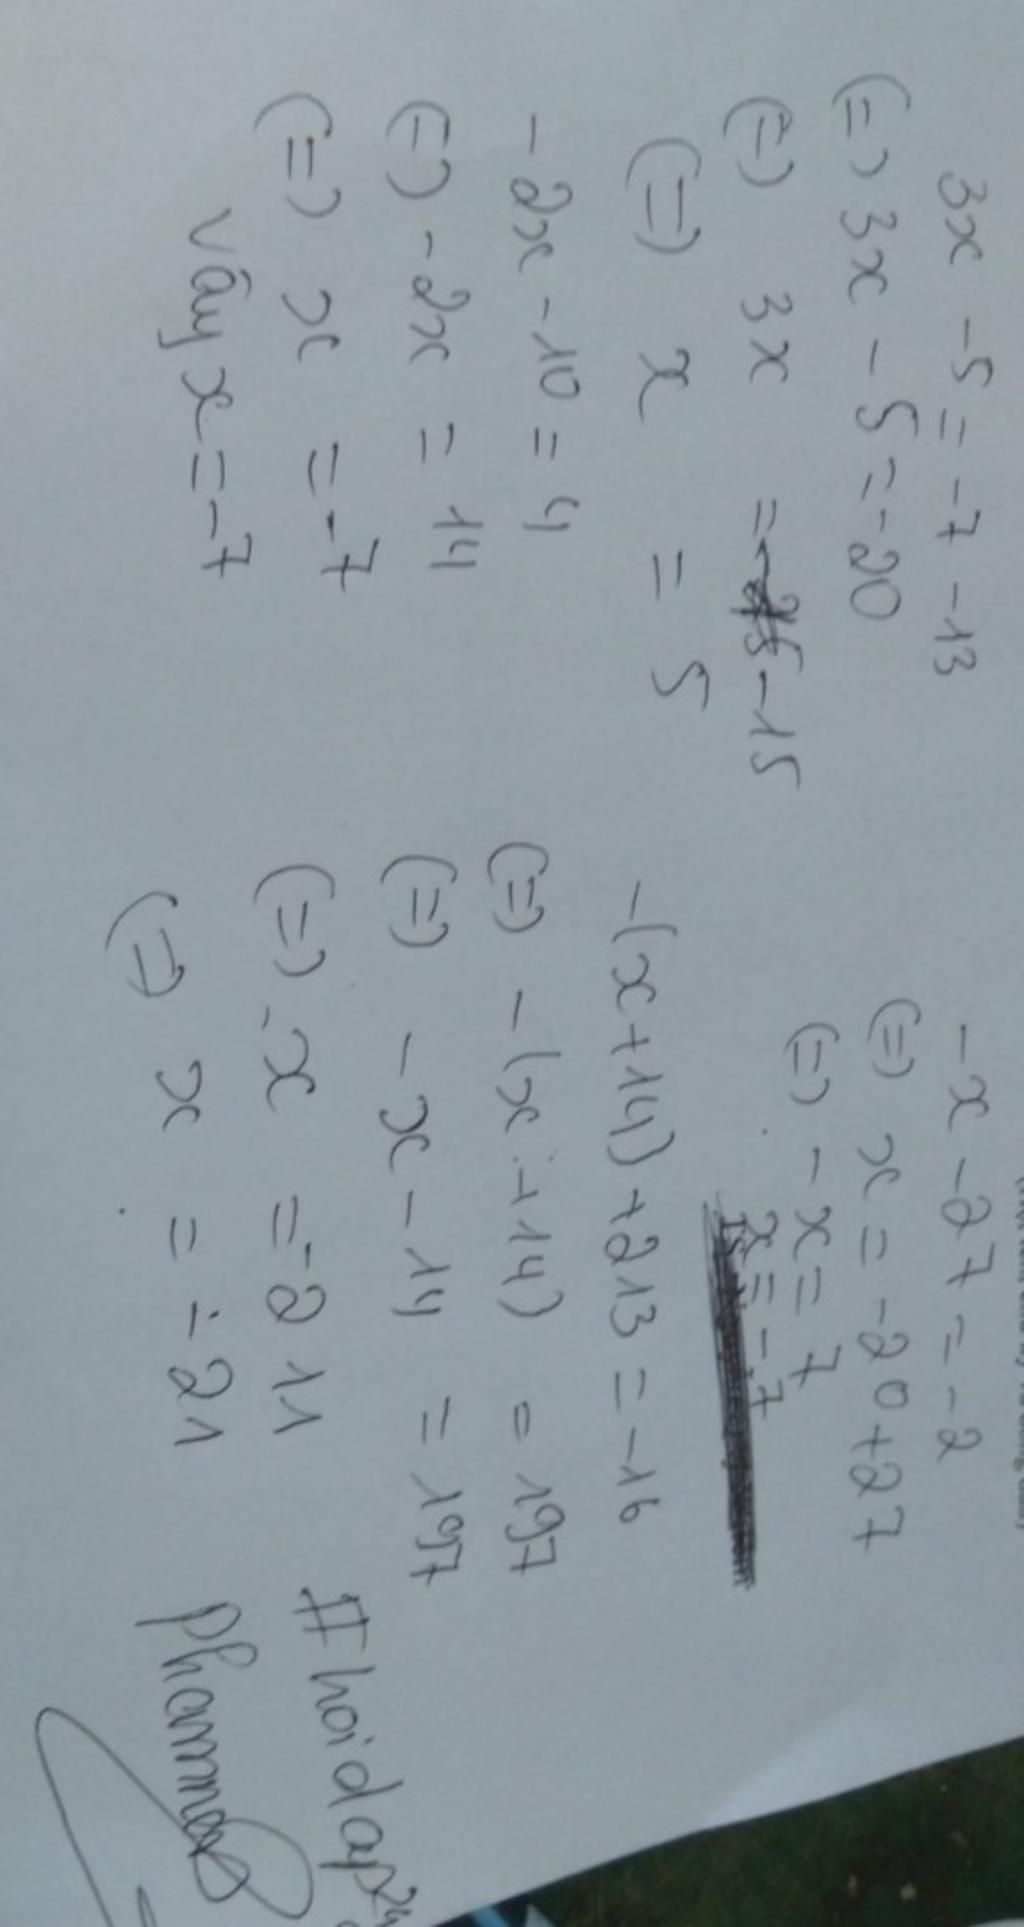 3x - 5 = -7 - 13
(=) 3x - 5 = -20
(=) 3x = -15
(=) x = 5
-2x - 10 = 4
(=) -2x = 14
(=) x = -7
vậy x = -7
-x - 27 = -2
(=) x = -20 + 27
(=) -x = 7
x = -7
-(x + 14) + 213 = -16
(=) -(x + 14) = 197
(=) -x - 14 = 197
(=) -x = -211
(=) x = -21
#hoidap24